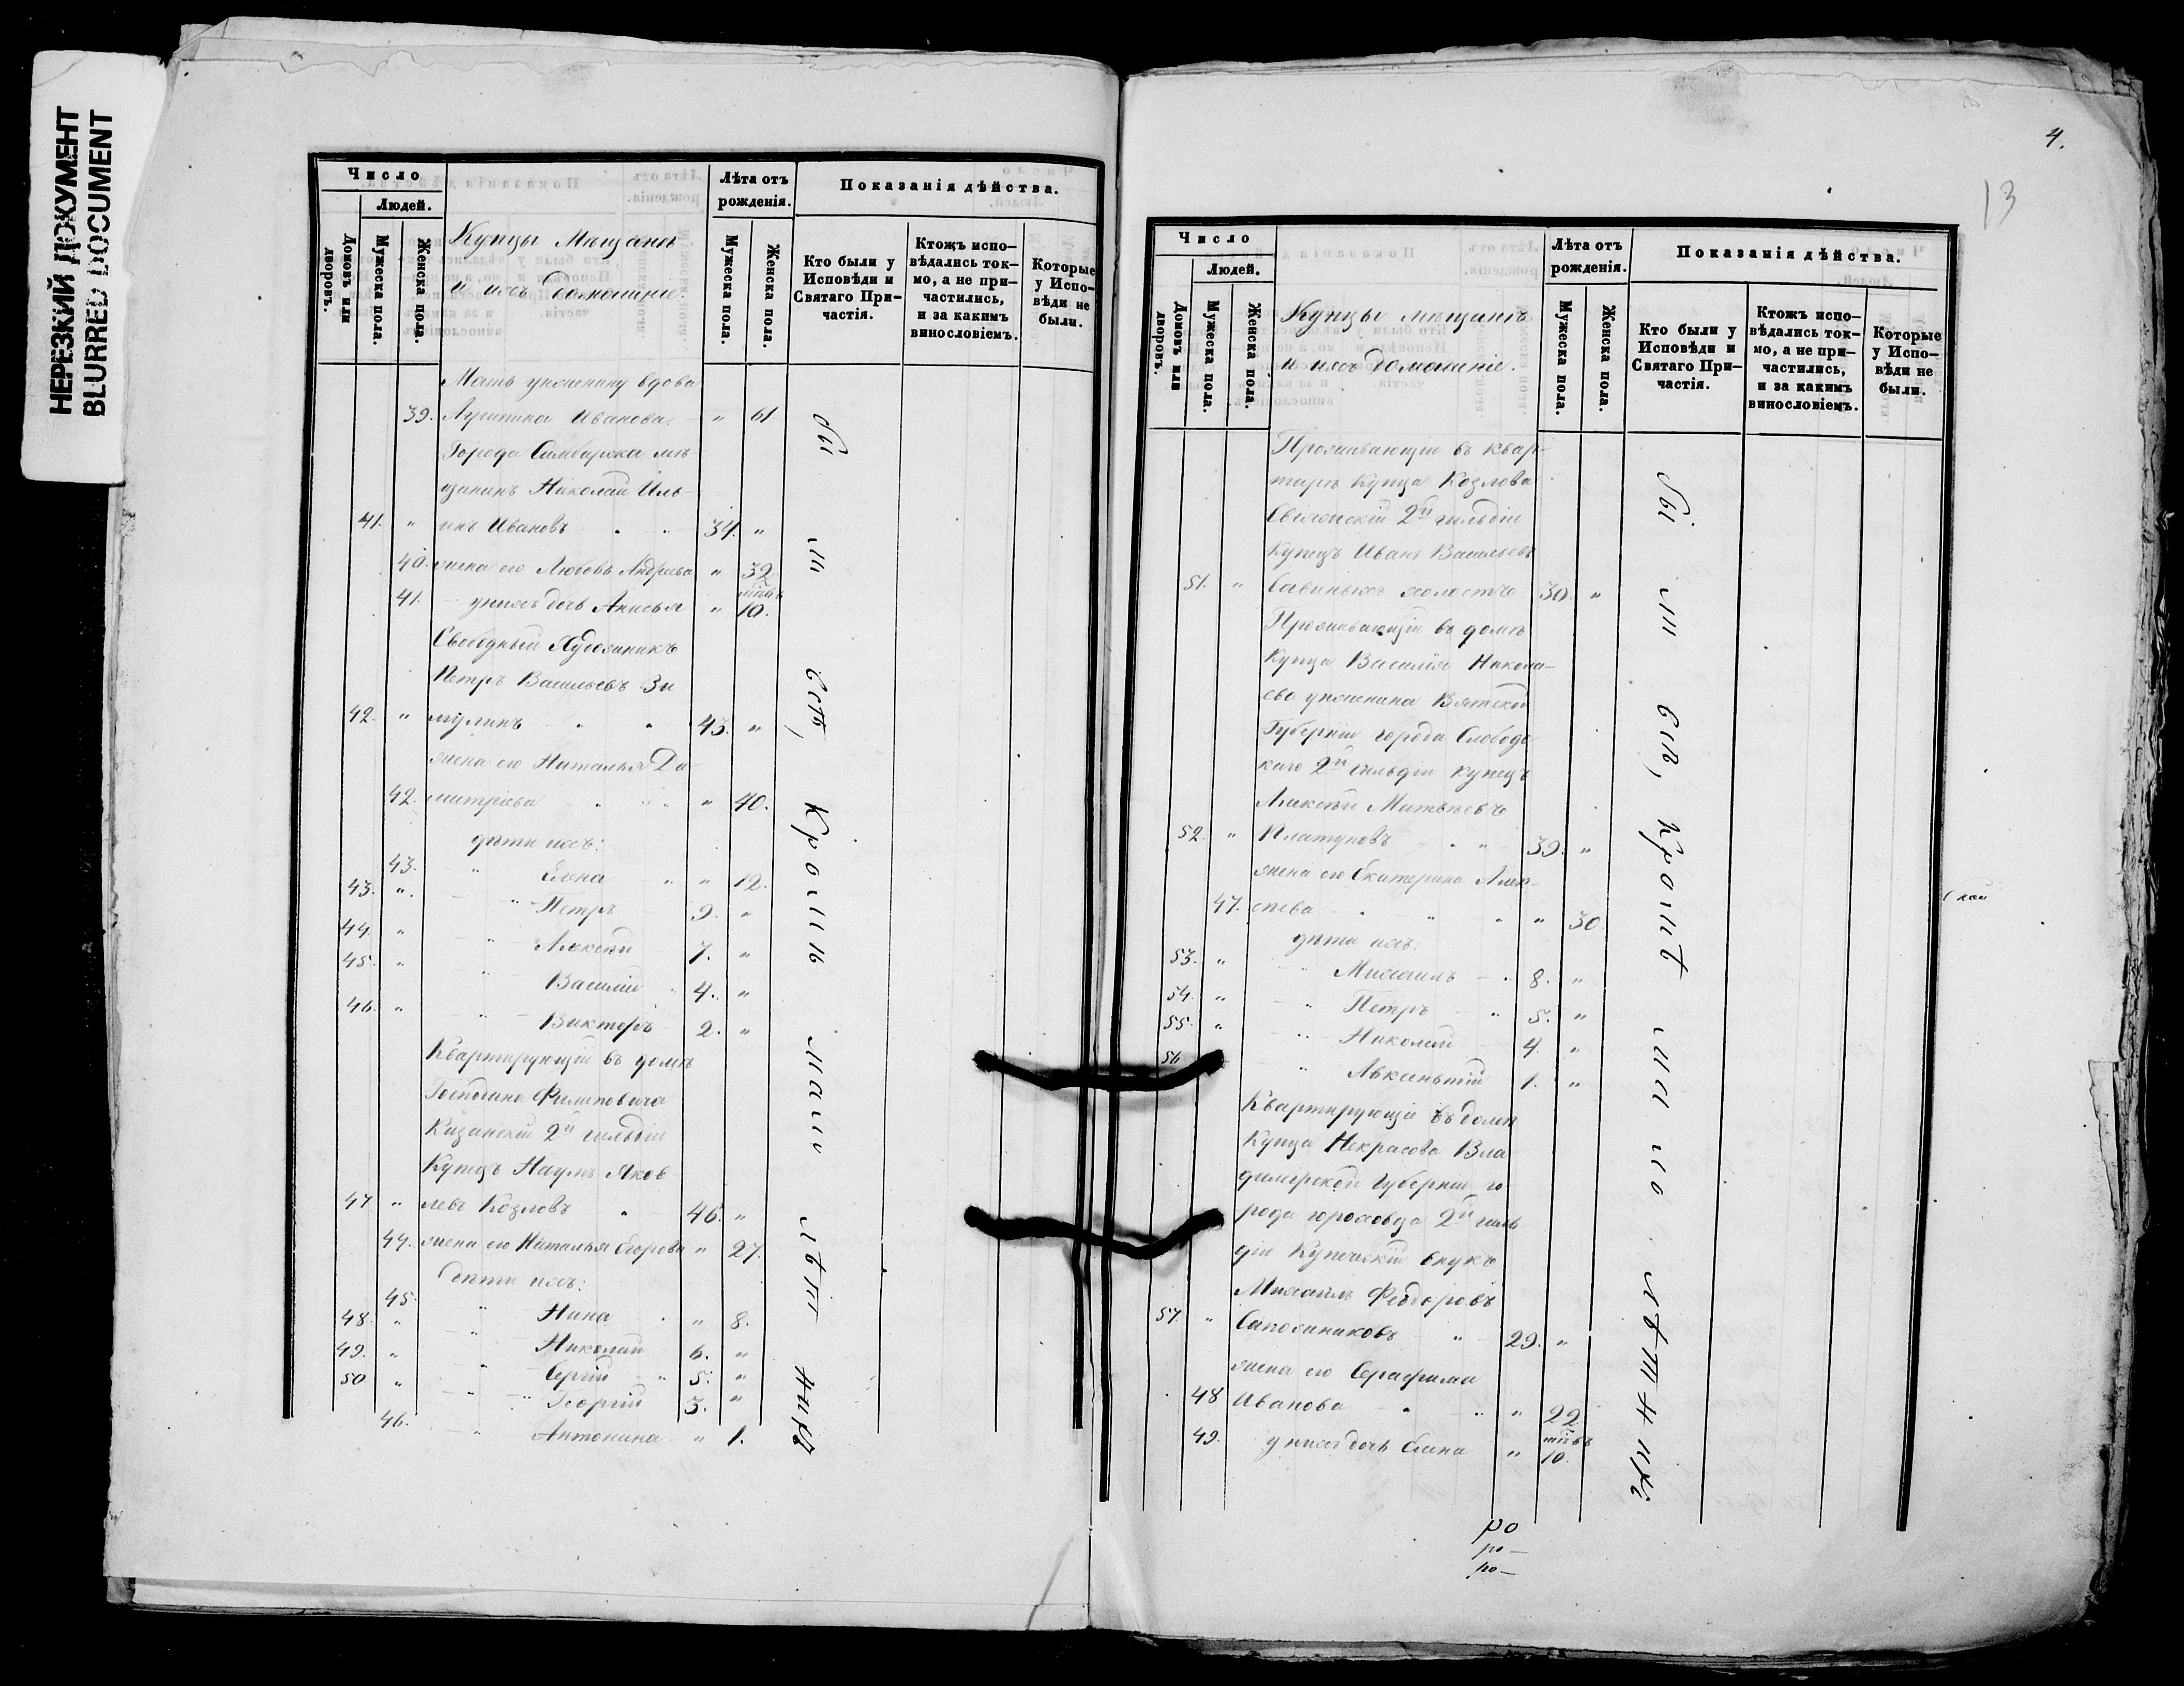 НЕРЕЗКИЙ ДОКУМЕНТ
BLURRED DOCUMENT
Число
Людей.
Домовъ или дворовъ.
Мужеска пола.
Женска пола.
Купцы Мѣщане
и ихъ домашніе.
Лѣта отъ рожденія.
Мужеска пола.
Женска пола.
Показанія дѣйства.
Кто были у Исповѣди и Святаго При-частія.
Ктожъ испо-вѣдались ток-мо, а не при-частились, и за какимъ винословіемъ.
Которые у Испо-вѣди не были.
Мать умершину вдова
39. Иванова. " 61.
Города Симбирска мѣ-
щанинъ Николай Иль-
41. " инъ Ивановъ 34. "
40. жена его Любовь Андреева " 32
41. у нихъ дочь Анисья " мѣсяцъ 10.
Свободный Художникъ
Петръ Васильевъ Зи
42. " мулинъ 43. "
жена его Наталья Ди-
42. митріева " 40.
дѣти ихъ:
43. " Елена " " 12.
43. " Петръ 9. "
44. " Алексѣй 7. "
45. " Василій 4. "
46. " Викторъ 2. "
Квартирующій въ домѣ
Господина Филиповича
Казанскій 2й гильдіи
Купецъ Наумъ Яков
47 " левъ Козловъ 46. "
44. жена его Наталья Егорова " 27.
дѣти ихъ:
45. " Нина " 8.
48. " Николай 6. "
49. " Сергій 5. "
50 " Георгій 3. "
46. " Антонина " 1.
Были всѣ, кромѣ мало лѣтнихъ
4.
13
Число
Людей.
Домовъ или дворовъ.
Мужеска пола.
Женска пола.
Купцы мѣщане
и ихъ домашніе.
Лѣта отъ рожденія.
Мужеска пола.
Женска пола.
Показанія дѣйства.
Кто были у Исповѣди и Святаго При-частія.
Ктожъ испо-вѣдались ток-мо, а не при-частились, и за какимъ винословіемъ.
Которые у Испо-вѣди не были.
Проживающій въ квар-
тирѣ Купца Козлова
Свіяжскій 2й гильдіи
Купецъ Иванъ Васильевъ
51. " Савиныхъ холостъ 30. "
Проживающій въ домѣ
Купца Василія Никола-
ева Вятской
Губерніи города Слободс
каго 2й гильдіи купецъ
Алексѣй Матвѣевъ
52. " Платуновъ 39. "
жена его Екатерина Алек-
47. сѣева " 30
дѣти ихъ:
53. " Михаилъ 8. "
54. " Петръ 5. "
55. " Николай 4. "
56. " Авксентій 1. "
Квартирующіе въ домѣ
Купца Некрасова Вла
димірской Губерніи го-
рода гороховца 2й гиль
діи Купеческій внукъ
Михаилъ Феодоровъ
57. " Сапожниковъ 29. "
жена его Серафима
48 Иванова " 22
49. у нихъ дочь Елена " мѣсяцъ 10.
Были всѣ, кромѣ мало лѣтнихъ
ро
ро-
ро-